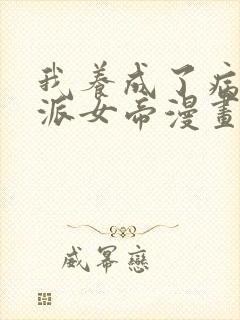 我養成了病
派女帝漫畫
威冪戀